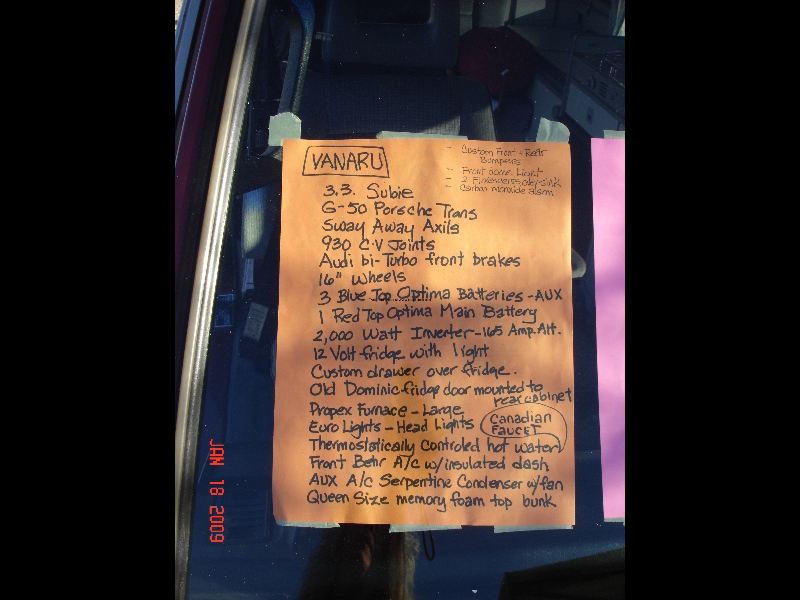 VANARU
- Custom Front + Rear
Bumpers
- Front dome Light
- Carbon monoxide alarm
3.3. Subie
G-50 Porsche Trans
Sway Away Axils
930 C.V Joints
Audi bi-Turbo front brakes
16" Wheels
3 Blue Top Optima Batteries - AUX
1 Red Top Optima Main Battery
2,000 Watt Inverter - 165 Amp. Alt.
12 Volt fridge with light
Custom drawer over fridge.
Old Dominic fridge door mounted to
rear cabinet
Propex Furnace - Large
Euro Lights - Head Lights
Canadian
FAUCET
Thermostatically Controled hot water
Front Behr A/C w/insulated dash
AUX A/C Serpentine Condenser w/fan
Queen Size memory foam top bunk
JAN 18 2009